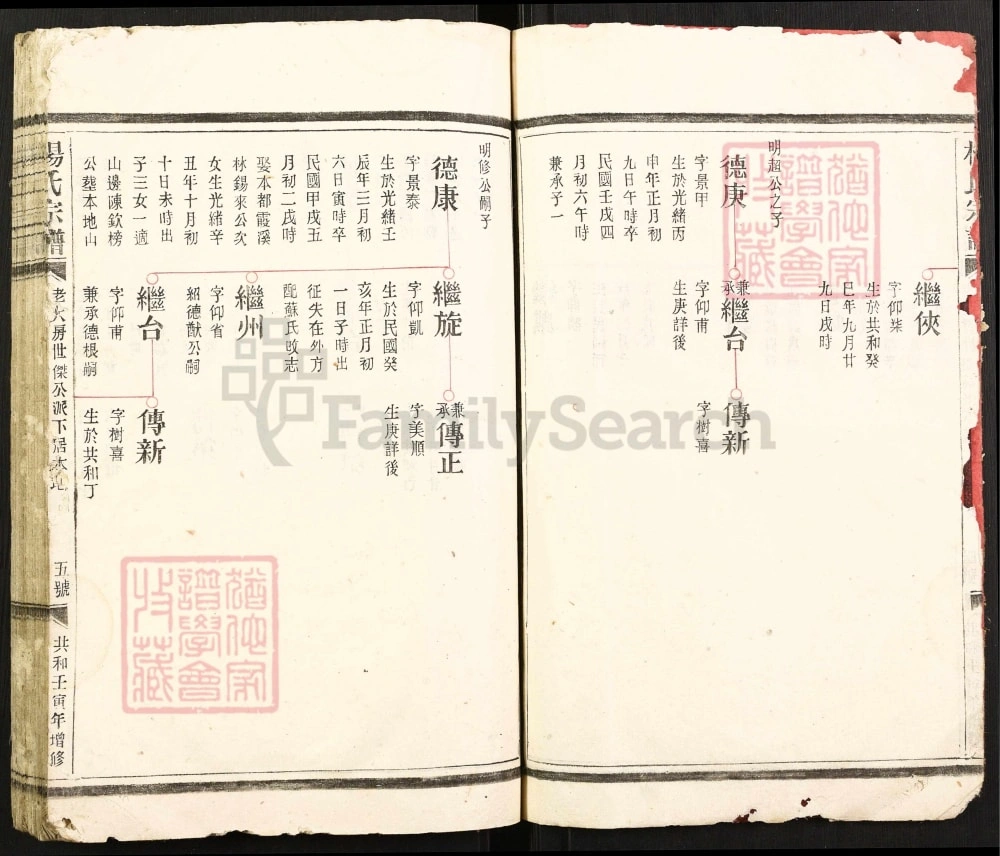 繼俠
字仰桀
生於共和癸
巳年九月廿
九日戌時
明超公之子
德庚
字景甲
生於光緒丙
申年正月初
九日午時卒
民國壬戌四
月初六午時
兼承子一
兼承繼台
字仰甫
生庚詳後
傳新
字樹喜
明修公嗣子
德康
字景泰
生於光緒壬
辰年三月初
六日寅時卒
民國甲戌五
月初二戌時
娶本都霞溪
林錫來公次
女生光緒辛
丑年十月初
十日未時出
子三女一適
山邊陳欽榜
公塟本地山
繼旋
字仰凱
生於民國癸
亥年正月初
一日子時出
征失在外方
配蘇氏改志
繼州
字仰省
紹德猷公嗣
繼台
字仰甫
兼承德根嗣
兼承傳正
字美順
生庚詳後
傳新
字樹喜
生於共和丁
楊氏宗譜
老大房世傑公派下居本地
五號
共和壬寅年增修
FamilySearch